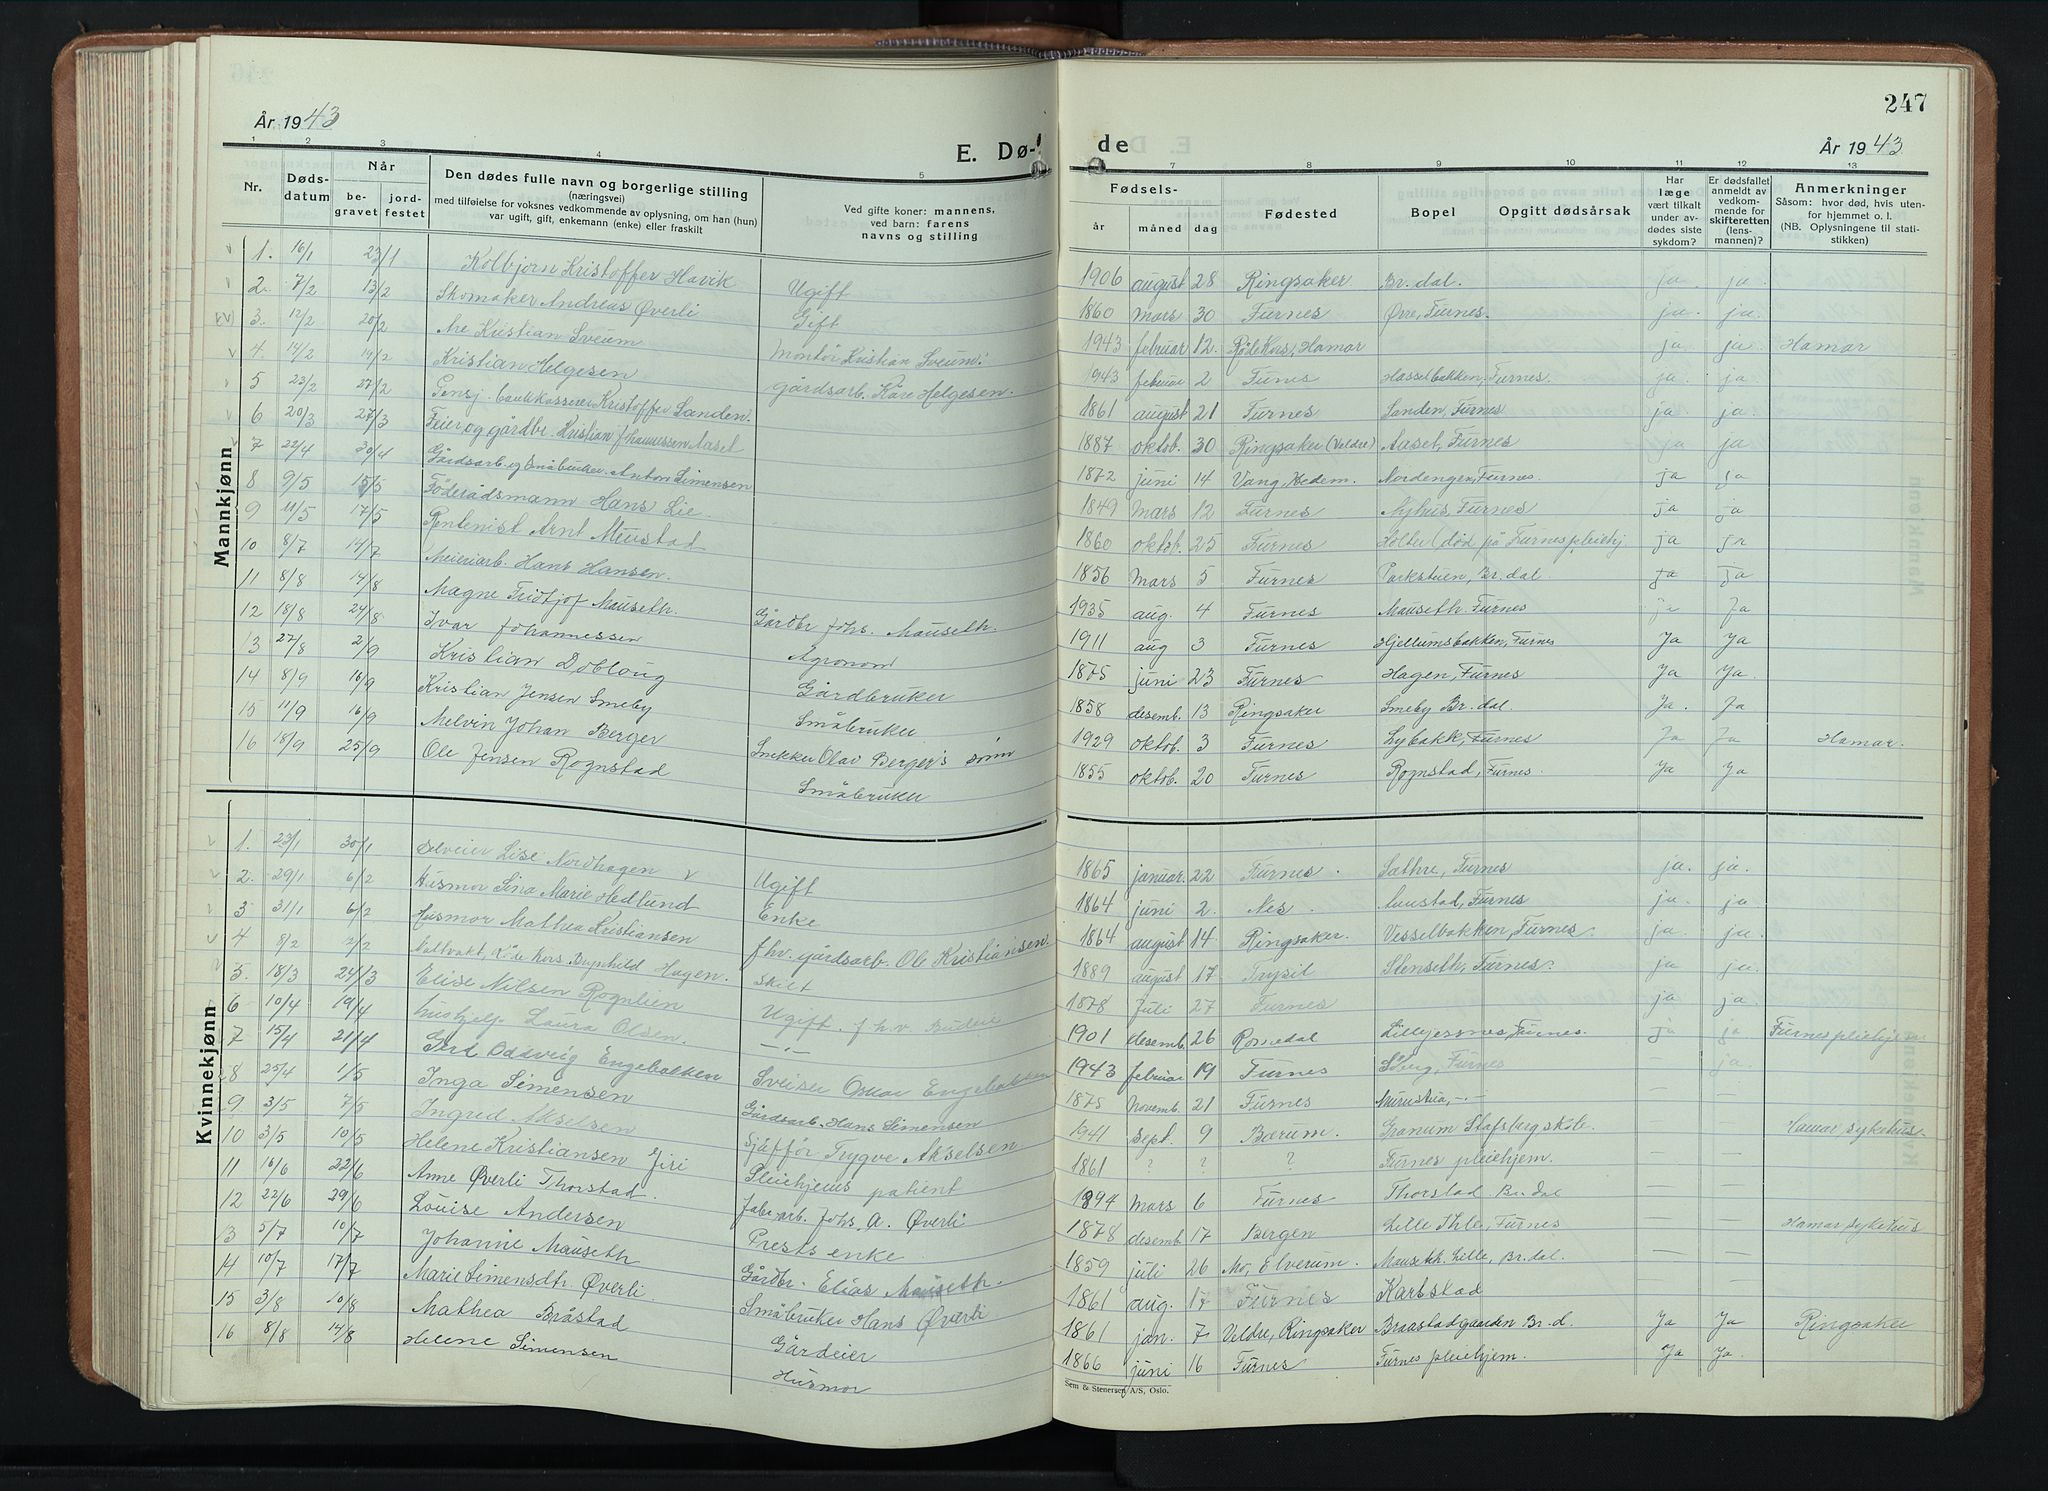 247
År 1943
E. Dø-
de
År 1943
1 2 3 4 5 7 8 9 10 11 12 13
Nr.
Døds-
datum
Når
be-
gravet
jord-
festet
Den dødes fulle navn og borgerlige stilling
(næringsvei)
med tilføielse for voksnes vedkommende av oplysning, om han (hun)
var ugift, gift, enkemann (enke) eller fraskilt
Ved gifte koner: mannens,
ved barn: farens
navns og stilling
Fødsels-
år
måned
dag
Fødested
Bopel
Opgitt dødsårsak
Har
læge
vært tilkalt
under av-
dødes siste
sykdom?
Er dødsfallet
anmeldt av
vedkom-
mende for
skifteretten
(lens-
mannen)?
Anmerkninger
Såsom: hvor død, hvis uten-
for hjemmet o. l.
(NB. Oplysningene til stati-
stikken)
Mannkjønn
1. 16/1 23/1 Kolbjørn Kristoffer Havik Ugift 1906 august 28 Ringsaker Br.dal. ja ja
2. 7/2 13/2 Skomaker Andreas Øverli Gift 1860 mars 30 Furnes Øvre, Furnes. ja. ja.
3. 12/2 20/2 Are Kristian Sveum Montør Kristian Sveum. 1943 februar 12. Røde Kors, Hamar ja ja Hamar
4. 14/2 19/2 Kristian Helgesen gårdsarb. Kåre Helgesen. 1943 februar 2 Furnes Hasselbakken, Furnes. ja. ja
5 23/2 27/2 Pensj. bankkasserer Kristoffer Sanden. 1861 august 21 Furnes Sanden, Furnes ja. ja.
6 20/3 27/3 Feier og gårdbr. Kristian Johannessen Aaset 1887 oktob. 30 Ringsaker (Veldre) Aaset, Furnes ja ja
7 22/4 30/4 Gårdsarb. og Småbruker. Anton Simensen 1872 juni 14 Vang, Hedem. Nordengen, Furnes. ja ja
8 9/5 15/5 Föderådsmann Hans Lie. 1849 mars 12 Furnes Nyhus, Furnes ja ja
9 11/5 17/5 Rentenist Arnt Meustad 1860 oktob. 25 Furnes Holter (død på Furnes pleiehj. ja ja
10 8/7 14/7 Meieriarb. Hans Hansen. 1856 mars 5 Furnes Parkstuen, Br.dal. ja ja
11 8/8 14/8 Magne Fridtjof Mauseth. Gårdbr Johs. Mauseth. 1935 aug. 4 Furnes Mauseth. Furnes ja Ja
12 18/8 24/8 Ivar Johannessen Agronom 1911 aug 3 Furnes Hjellumsbakken, Furnes Ja Ja
13 27/8 2/9 Kristian Dobloug Gårdbruker 1875 juni 23 Furnes Hagen, Furnes Ja Ja.
14 8/9 16/9 Kristian Jensen Smeby Småbruker 1858 desemb. 13 Ringsaker Smeby Br.dal Ja. Ja
15 11/9 16/9 Melvin Johan Berger Snekker Olav Berger's sønn 1929 oktob. 3 Furnes Lybakk, Furnes Ja Ja Hamar.
16 18/9 25/9 Ole Jensen Rognstad Småbruker 1855 oktob. 20 Furnes Rognstad, Furnes. Ja Ja
Kvinnekjønn
1. 23/1 30/1 Lise Nordhagen Ugift 1865 januar. 22 Furnes. Sathre, Furnes ja. ja.
2. 29/1 6/2 Husmor Lina Marie Hedlund Enke 1864 juni 2. Nes. Furnes ja. ja
3 31/1 6/2 Husmor Mathea Kristiansen f.hv. gårdsarb. Ole Kristiansen 1864 august 14 Ringsaker. Vesselbakken, Furnes. ja. ja.
4 8/2 2/2 Nattvakt, Røde Kors. Hagen. skilt 1889 august 17 Trysil Stenseth, Furnes. ja ja.
5. 18/3 24/3 Elise Nilsen Rognlien Ugift. f.h.v. Budeie 1878 Juli 27 Furnes ja ja.
6 10/4 19/4 Hushjelp Laura Olsen. —"— 1901 desemb. 26 Romedal Furnes. ja ja Furnes pleiehjem
7 15/4 21/4 Gerd Oddveig Engebakken Sveiser Oskar Engebakken 1943 februar 19 Furnes Furnes — ja.
8 25/4 1/5 Inga Simensen Gårdsarb. Hans Simensen 1875 novemb. 21 Furnes Murustua, -"- — —
9 3/5 7/5 Ingrid Akselsen Sjåffør Trygve Akselsen 1941 Sept. 9 Bærum. Granum Stafsberg skole. — — Hamar sykehus
10 3/5 10/5 Helene Kristiansen Jiri Pleiehjems patient 1861 ? ? ? Furnes pleiehjem. — —
11 16/6 22/6 Anne Øverli Thorstad. Fabr.arb. Johs. A. Øverli 1894 Mars 6 Furnes Thorstad. Br.dal — —
12 22/6 29/6 Louise Andersen Prests enke 1878 desemb. 17 Bergen Lille Ihle, Furnes — Hamar sykehus
13 5/7 10/7 Johanne Mauseth Gårdbr. Elias Mauseth. 1859 juli 26 Mo, Elverum. Mauseth Lille, Br.dal. — —
14 10/7 17/7 Marie Simensdtr. Øverli Småbruker Hans Øverli 1861 aug. 17 Furnes Karlstad —
15 3/8 10/8 Mathea Bråstad Gårdeier 1861 jan. 7 Veldre, Ringsaker Braastadgaarden Br.d. Ja Ja Ringsaker
16 8/8 14/8 Helene Simensen Husmor 1866 juni 16 Furnes Furnes pleiehjem. Ja Ja.
Sem & Stenersen A/S, Oslo.